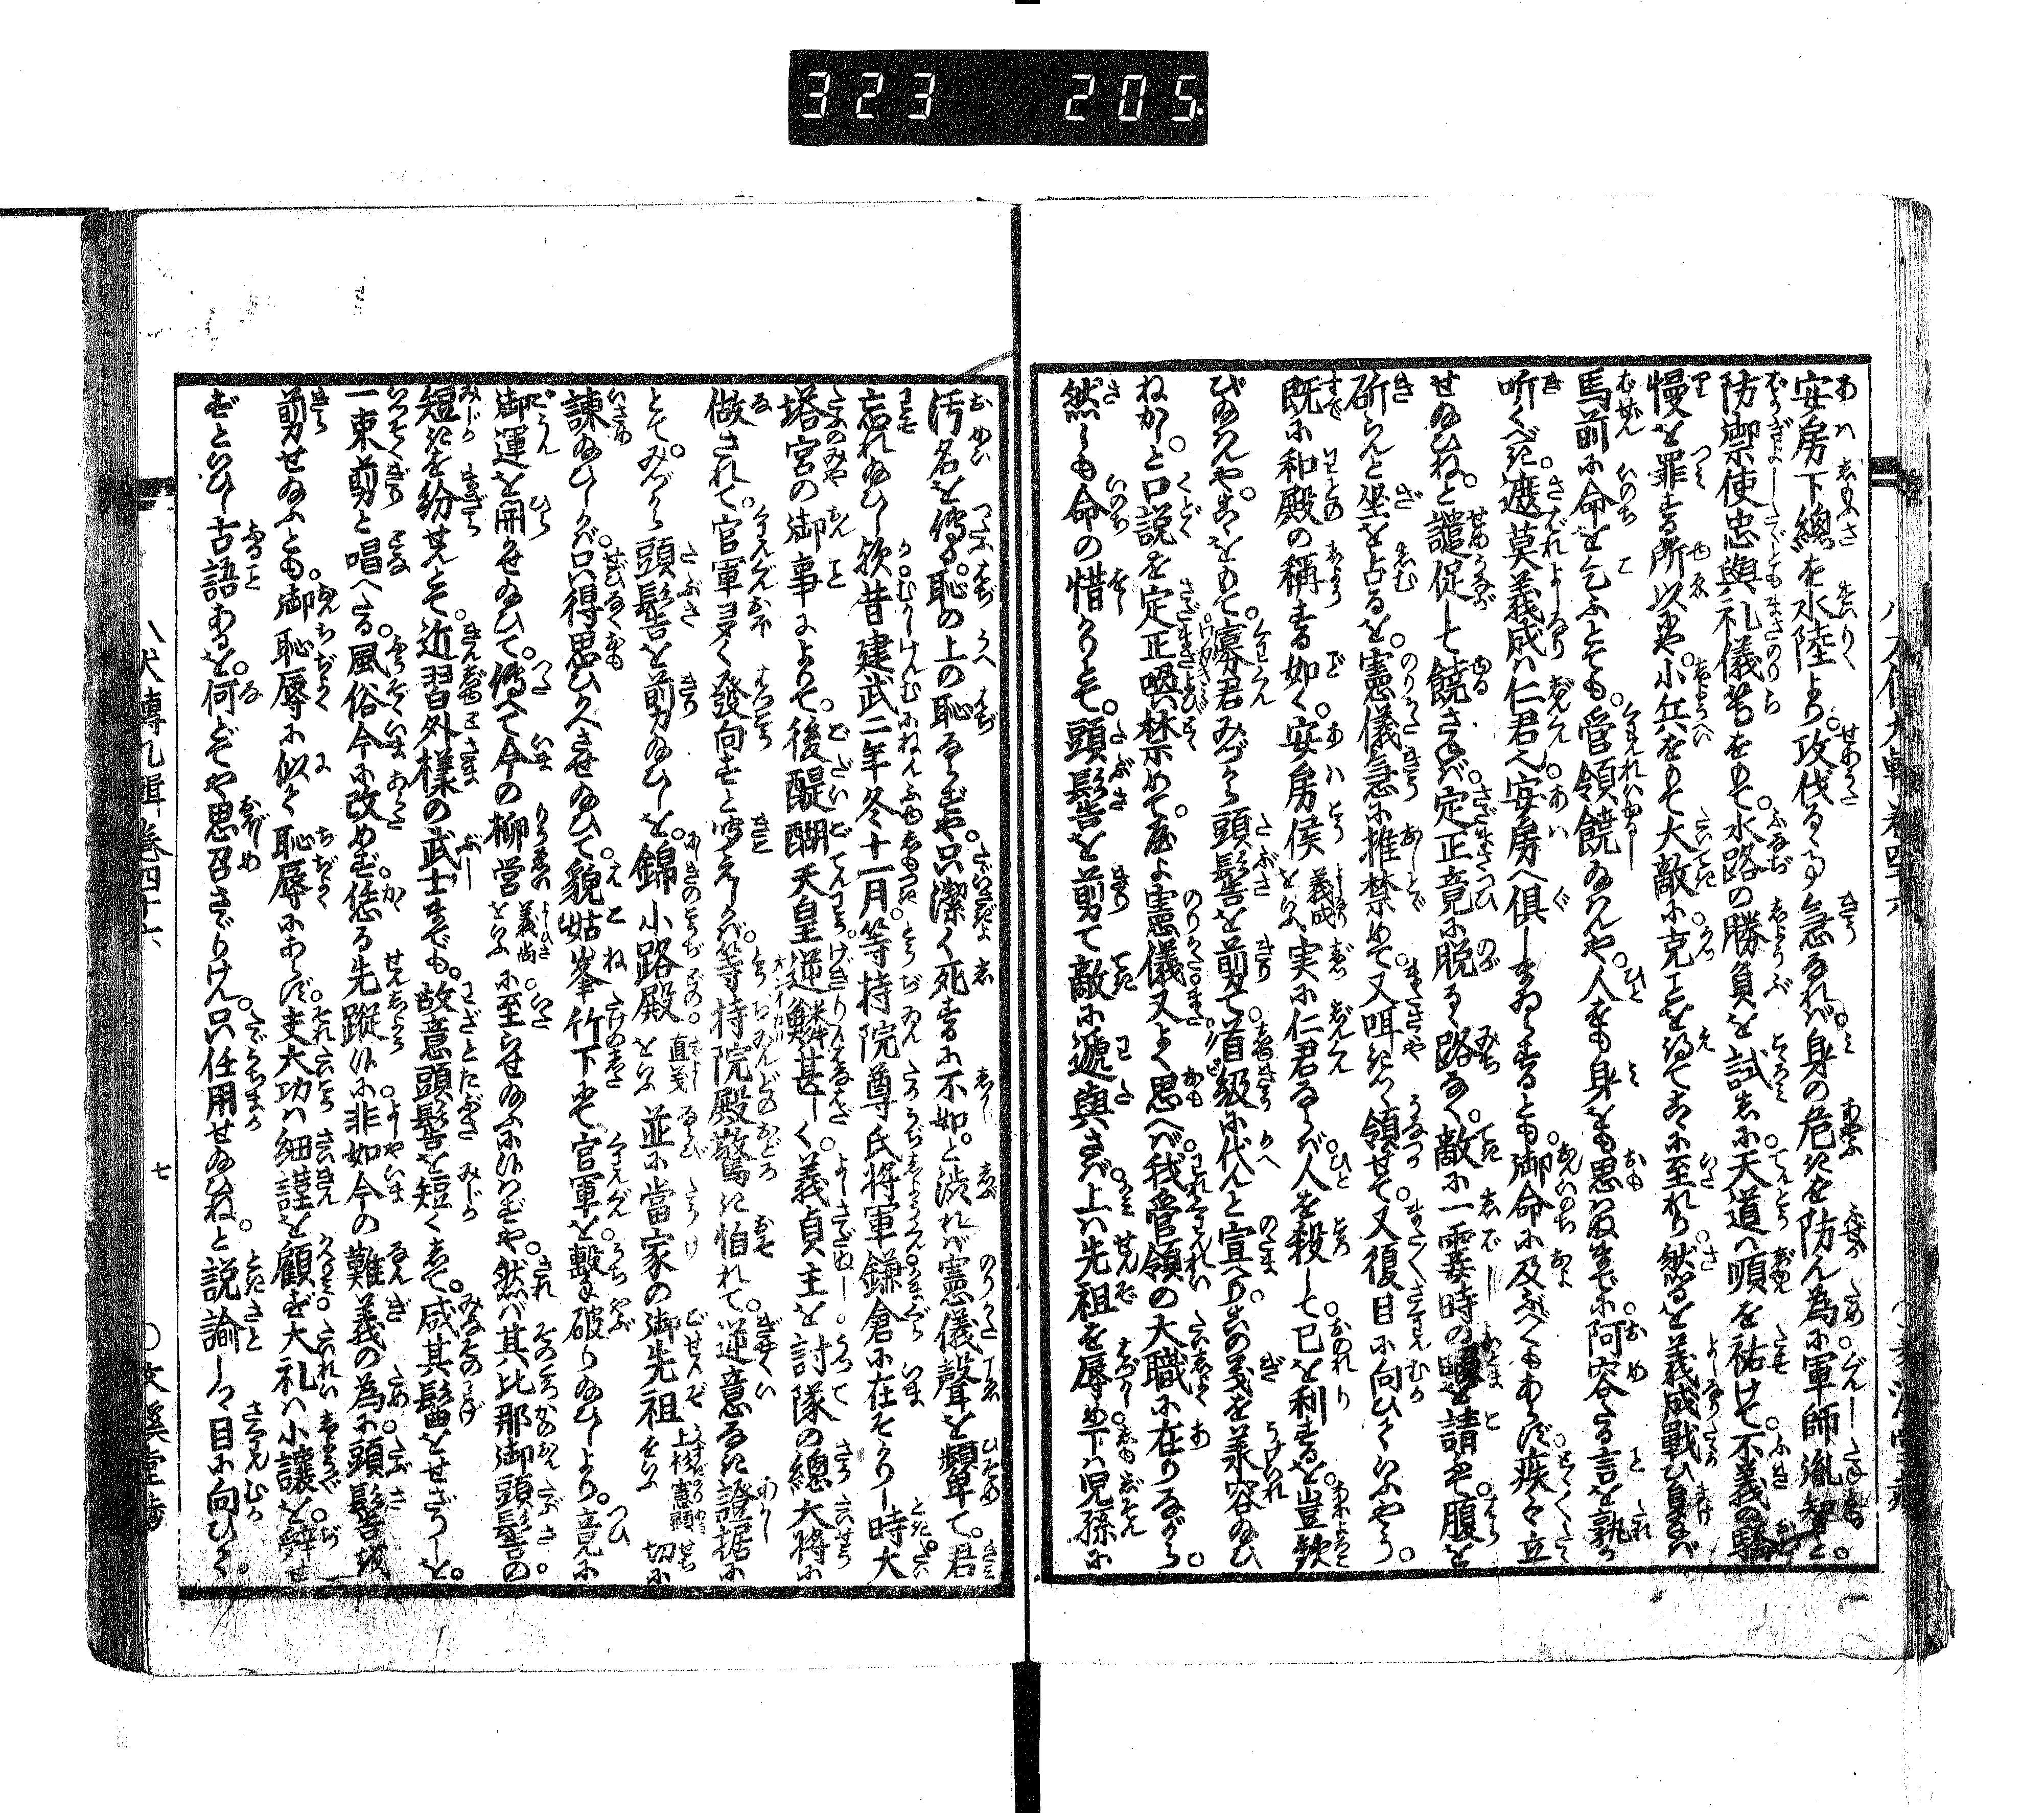 323 205
安房下總を水陸より。攻伐るゝ事急なれバ。身の危きを防ん為に。軍師胤智と。
防禦使忠與礼儀等をもて。水路の勝負を試るに。天道ハ順を祐けて。不義の驕
慢を罪する所以にや。小兵をもて大敵に。克ことを得てこゝに至れり。然るを義成戰ひ負なバ
馬前に命をこふとても。管領饒給んや。人をも身をも思はぬまでに。阿容たる言を孰か
听くべき。遮莫義成ハ仁君也。安房へ倶しまゐらするとも。御命に及ぶべくもあらず。疾々立
せ給ひね。と譴促して饒さねバ。定正竟に脱るゝ路なく。敵に一霎時の暇を請て。腹を
斫らんと坐を占るを。憲儀急に推禁めて。又咡きつゝ領せて。又復目に向ひていふやう。
既に和殿の稱する如く。安房侯義成をいふ。実に仁君ならバ。人を殺して。己を利するを。豈歓
び給んや。こゝをもて。寡君みづから頭髻を剪りて。首級に代んと宣へり。この義を羕容給ひ
ねかし。と口説を定正喚禁めて。やよ憲儀。又よく思へバ。我管領の大職に在りながら。
然しも命の惜かりとて。頭髻を剪て敵に遞與さバ。上ハ先祖を辱め。下ハ児孫に
汚名を傳ふ。恥の上の恥ならずや。只潔く死するに不如。と渋れバ憲儀聲を顰めて。君
忘れ給ひし欤。昔建武二年冬十一月。等持院尊氏將軍。鎌倉に在そかりし時。大
塔宮の御事によりて。後醍醐天皇逆鱗甚しく。義貞主を討隊の總大將に
做されて。官軍多く發向すと聞えしかバ。等持院殿驚き怕れて。逆意なき證据に
とて。みづから頭髻を剪給ひしを。錦小路殿直義をいふ。並に當家の御先祖上杉憲顯をいふ切に
諫給ひしかバ。只得思ひかへさせ給ひて。貌姑峯竹下にて。官軍を撃破り給ひしより。竟に
御運を開かせ給ひて。傳へて今の柳營義尚をいふに。至らせ給ふにハあらずや。然バ其比那御頭髻の。
短きを紛せんとて。近習外様の武士までも。故意頭髻を短くして。咸其髷をせざりしを。
一束剪と唱へたる。風俗今に改めず。恁る先蹤ハに非如今の難義の為に。頭髻を
剪せ給ふとも。御恥辱に似て恥辱にあらず。夫大功ハ細謹を顧ず。大礼ハ小讓を辞せ
ずといひし。古語あるを。何とぞや思召さでりけん。只任用せ給ひね。と説諭しつゝ目に向ひて。
八犬傳九輯巻四十六
七
〇文溪堂藏